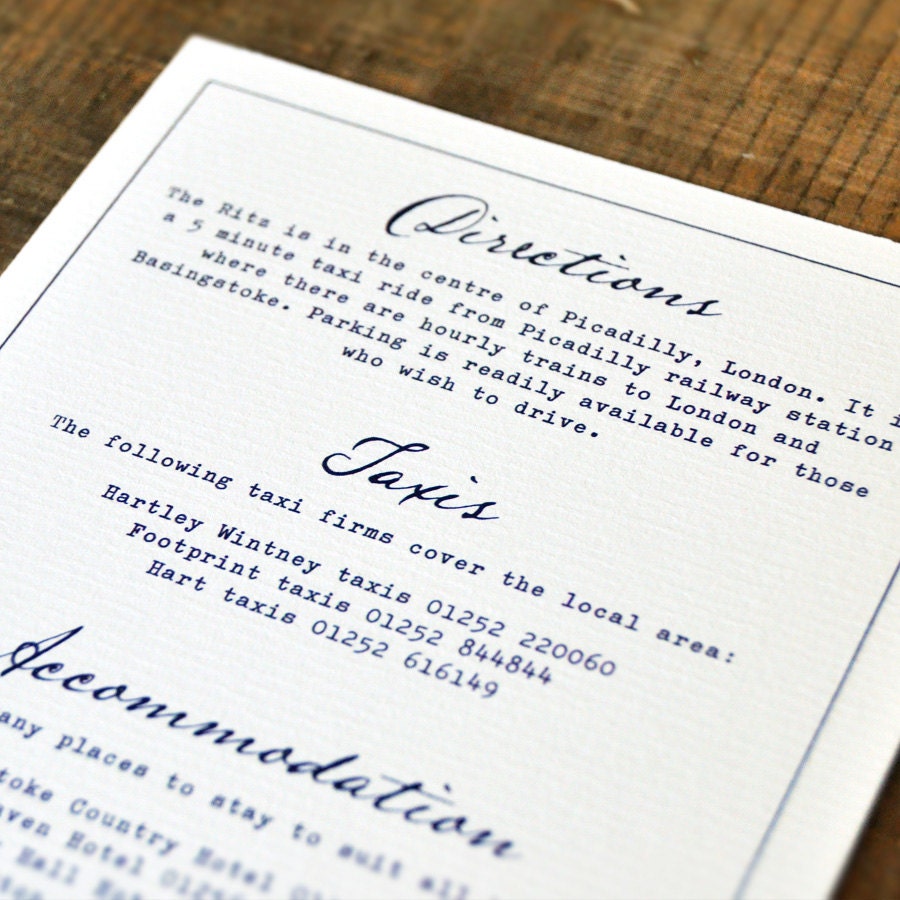 Directions
The Ritz is in the centre of Picadilly, London. It i
a 5 minute taxi ride from Picadilly railway station
where there are hourly trains to London and
Basingstoke. Parking is readily available for those
who wish to drive.
Taxis
The following taxi firms cover the local area:
Hartley Wintney taxis 01252 220060
Footprint taxis 01252 844844
Hart taxis 01252 616149
Accommodation
any places to stay to suit all
toke Country Hotel
ven Hotel
Hall